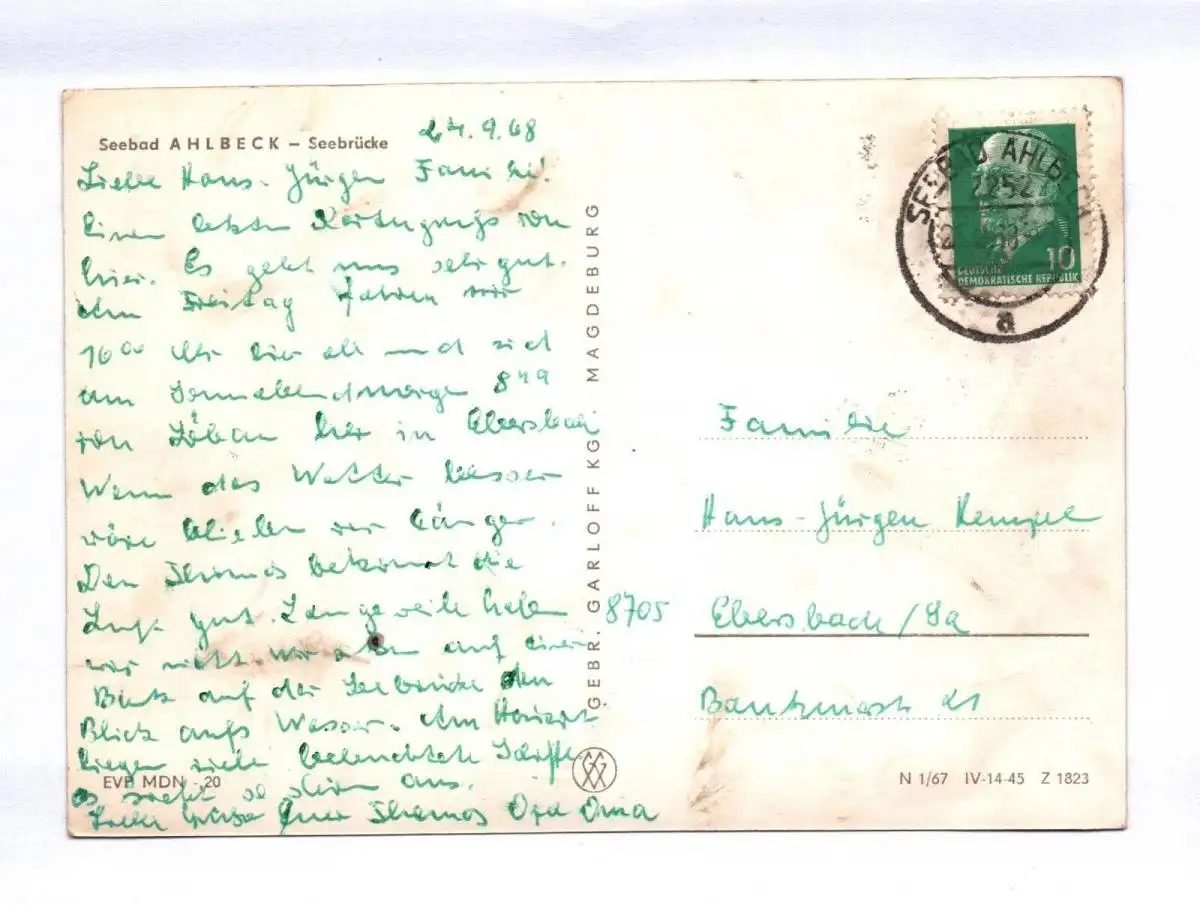 Seebad AHLBECK – Seebrücke
24.9.68
Liebe Hans-Jürgen Familie!
Einen letzten Kartengruß von
hier. Es geht uns sehr gut.
Am Freitag fahren wir
16⁰⁰ Uhr hier ab und sind
am Sonnabendmorgen 8⁴⁹
von Löbau her in Ebersbach
Wenn das Wetter besser
wäre blieben wir länger.
Den Thomas bekommt die
Luft gut. Langeweile haben
wir nicht. Wir auf einer
Bank auf der Seebrücke den
Blick aufs Wasser. Am Horizont
liegen viele beleuchtete Schiffe
es sieht so schön aus.
Liebe Grüße Euer Thomas Opa Oma
EVP MDN -,20
GEBR. GARLOFF KG MAGDEBURG
SEEBAD AHLBECK
2252
a
10
DEUTSCHE
DEMOKRATISCHE REPUBLIK
Familie
Hans-Jürgen Hempel
8705 Ebersbach/Sa
Bautznerstr 21
N 1/67 IV-14-45 Z 1823